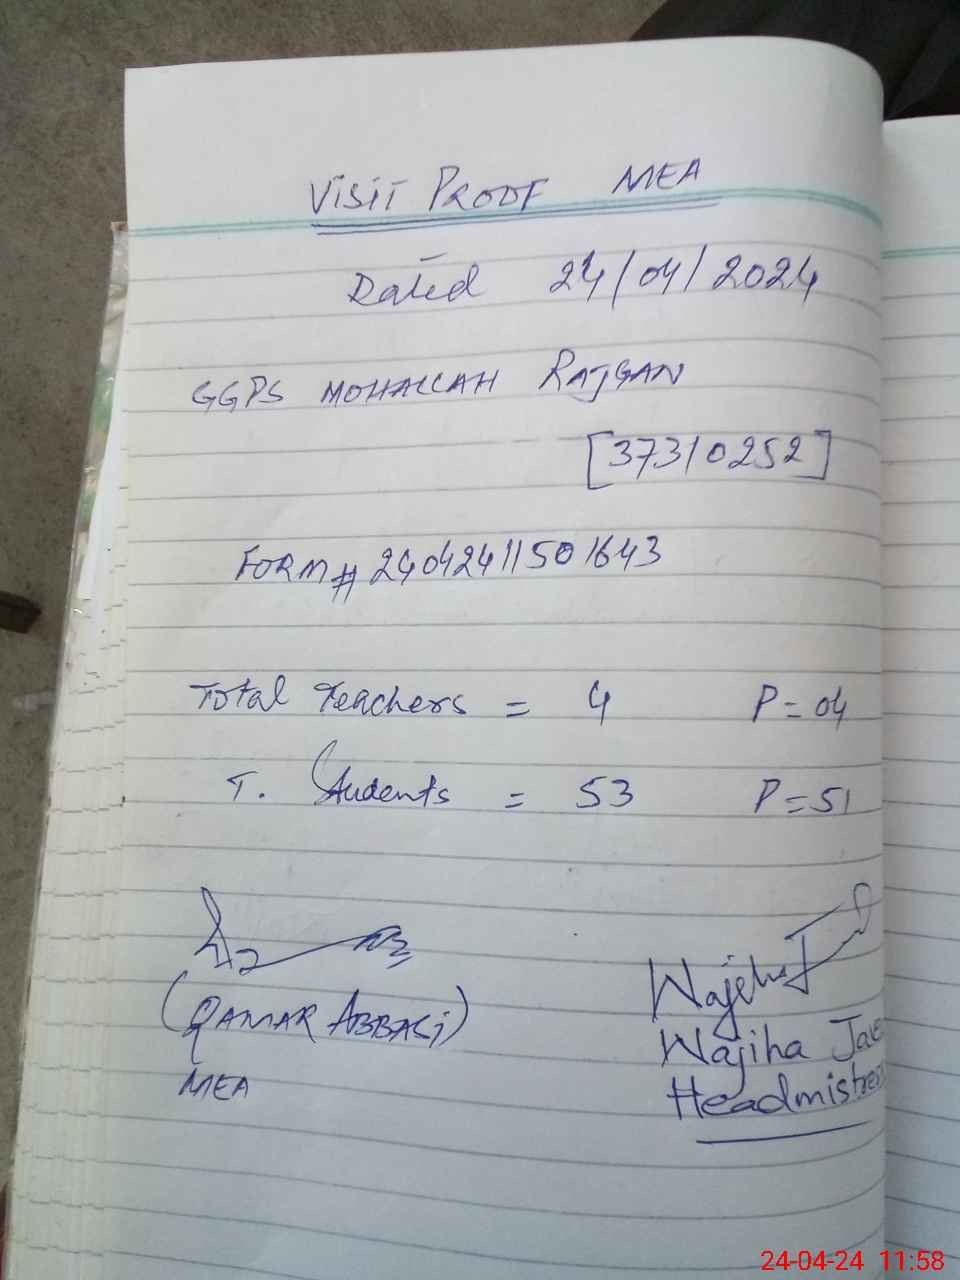 VISIT PROOF MEA
Dated 24/04/2024
GGPS MOHALLAH RAJGAN
[37310252]
FORM# 24042411501643
Total Teachers = 4 P = 04
T. Students = 53 P = 51
(QAMAR ABBASI)
MEA
Wajiha J
Wajiha Jave
Headmistress
24-04-24 11:58